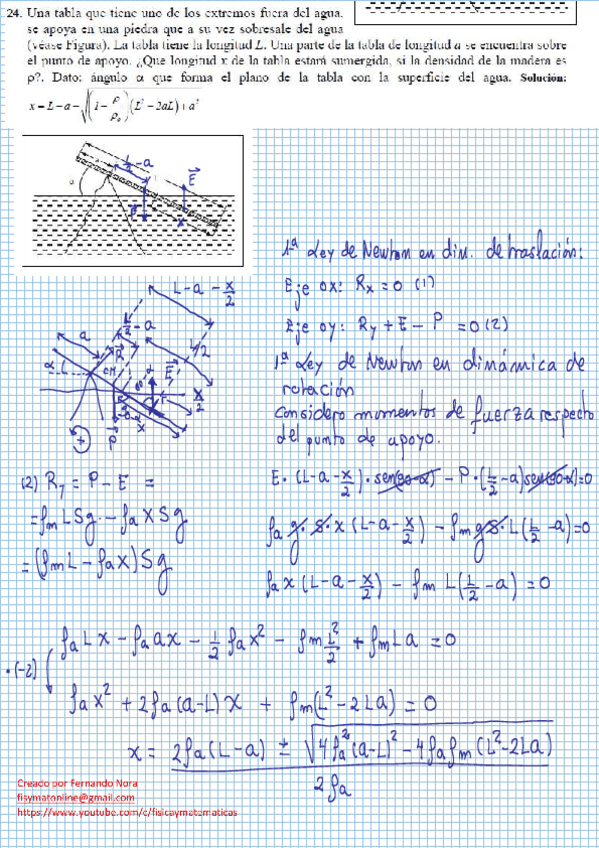 24. Una tabla que tiene uno de los extremos fuera del agua.
se apoya en una piedra que a su vez sobresale del agua
(véase Figura). La tabla tiene la longitud L. Una parte de la tabla de longitud a se encuentra sobre
el punto de apoyo. ¿Que longitud x de la tabla estará sumergida, si la densidad de la madera es
ρ?. Dato: ángulo α que forma el plano de la tabla con la superficie del agua. Solución:
x = L - a - √((1 - ρ/ρ₀)(L² - 2aL) + a²)
L/2 - a
E
P
1ª Ley de Newton en din. de traslación:
Eje ox: Rx = 0 (1)
Eje oy: Ry + E - P = 0 (2)
L - a - x/2
a
L/2 - a
R
L/2
α
CM
E
x/2
P
x
+
1ª Ley de Newton en dinámica de
rotación
Considero momentos de fuerza respecto
del punto de apoyo.
(2) Ry = P - E =
= ρm L S g - ρa x S g
= (ρm L - ρa x) S g
E · (L - a - x/2) · sen(90-α) - P · (L/2 - a) sen(90-α) = 0
ρa g · S · x (L - a - x/2) - ρm g S · L (L/2 - a) = 0
ρa x (L - a - x/2) - ρm L (L/2 - a) = 0
ρa L x - ρa a x - 1/2 ρa x² - ρm L²/2 + ρm L a = 0
·(-2)
ρa x² + 2ρa (a - L) x + ρm (L² - 2La) = 0
x = (2ρa (L - a) ± √(4ρa² (a - L)² - 4ρa ρm (L² - 2La))) / 2ρa
Creado por Fernando Nora
fisymatonline@gmail.com
https://www.youtube.com/c/fisicaymatematicas